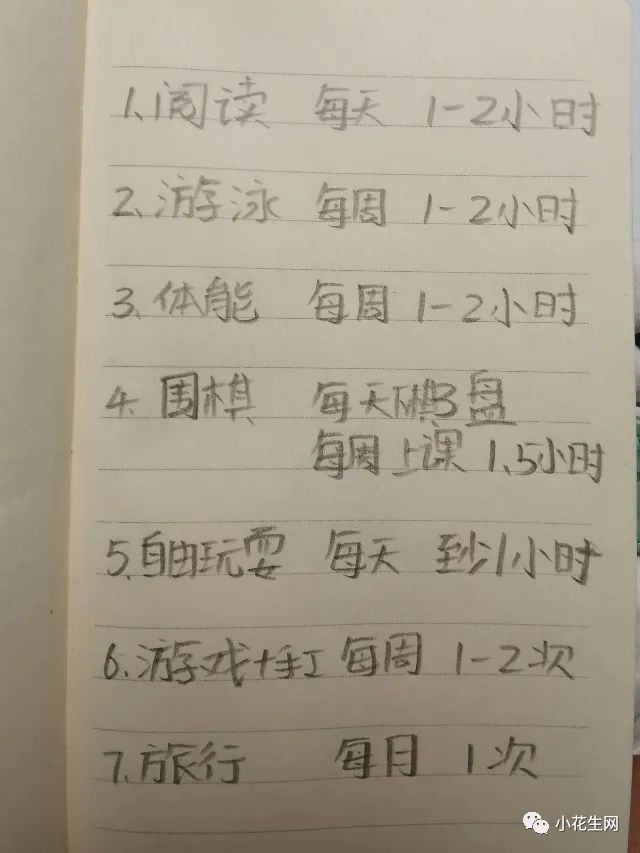 1、阅读 每天 1-2小时
2、游泳 每周 1-2小时
3、体能 每周 1-2小时
4、围棋 每天 3盘
每周上课 1.5小时
5、自由玩耍 每天 到少1小时
6、游戏+手工 每周 1-2次
7、旅行 每月 1次
小花生网